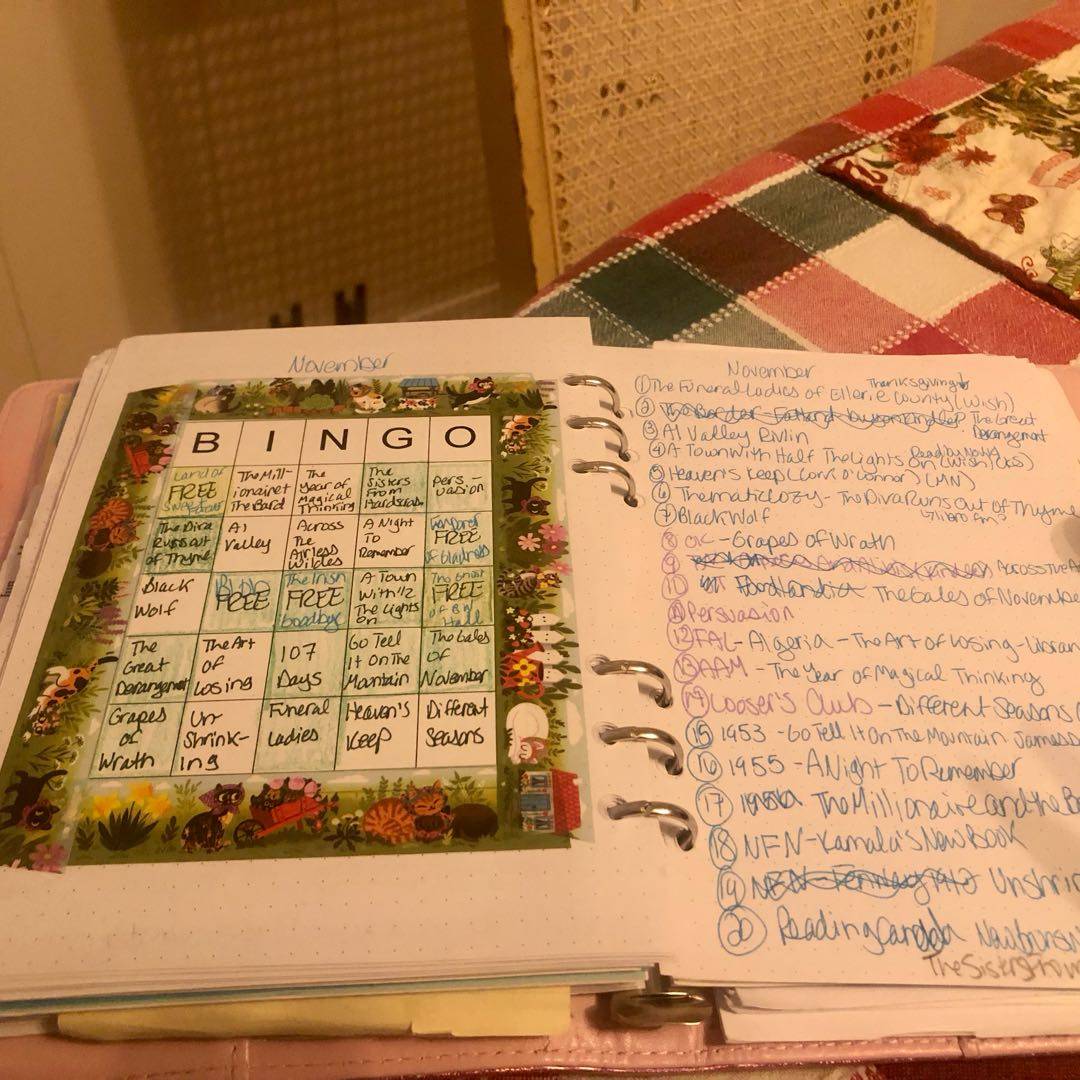 November
B I N G O
Land of
FREE
The Mill-
ionaire +
The Bard
The
Year of
Magical
Thinking
The
Sisters
From
Hardscrab.
Pers -
vasion
The Diva
Runs out
of Thyme
A1
Valley
Across
The
Airless
Wildes
A Night
To
Remember
FREE
of Blackness
Black
Wolf
FREE
The Irish
FREE
Goodbye
A Town
With 1/2
The Lights
On
The Ghost
FREE
Hall
The
Great
Derangement
The Art
of
Losing
107
Days
Go Tell
It On The
Mantain
The Gales
of
November
Grapes
of
Wrath
Un-
Shrink-
ing
Funeral
Ladies
Heaven's
Keep
Different
Seasons
November
① The Funeral Ladies of Ellerie County (Wish) Thanksgiving
2 The Great
Derangement
③ A1 Valley Rivlin
④ A Town With Half The Lights On (Wish)
⑤ Heaven's Keep (Cork O'Connor) (MN)
⑥ Thematic Cozy - The Diva Runs Out of Thyme
⑦ Black Wolf
⑧ OK - Grapes of Wrath
⑨ Across The A
⑩ Foodlandia The Gales of Novembe
⑪ Persuasion
⑫ FAL - Algeria - The Art of Losing -
⑬ AAM - The Year of Magical Thinking
⑭ Looser's Club - Different Seasons
⑮ 1953 - Go Tell It On The Mountain James
⑯ 1955 - A Night To Remember
⑰ The Millionaire and the B
⑱ NFN - Kamala's New Book
⑲ Unshrin
⑳ Reading Canada
The Sisters